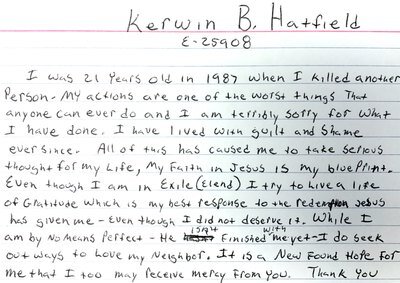 Kerwin B. Hatfield
E-25908
I was 21 years old in 1987 when I killed another
Person. My actions are one of the worst things That
anyone can ever do and I am terribly sorry for what
I have done. I have lived with guilt and shame
ever since. All of this has caused me to take serious
thought for my Life, My Faith in Jesus is my bluePrint.
Even though I am in Exile (Elend) I try to Live a life
of Gratitude which is my best response to the redemption Jesus
has given me - Even though I did not deserve it. While I
am by No Means Perfect - He isn't Finished with me yet - I do seek
out ways to Love my Neighbor. It is a New Found Hope For
me that I too may receive mercy From you. Thank You